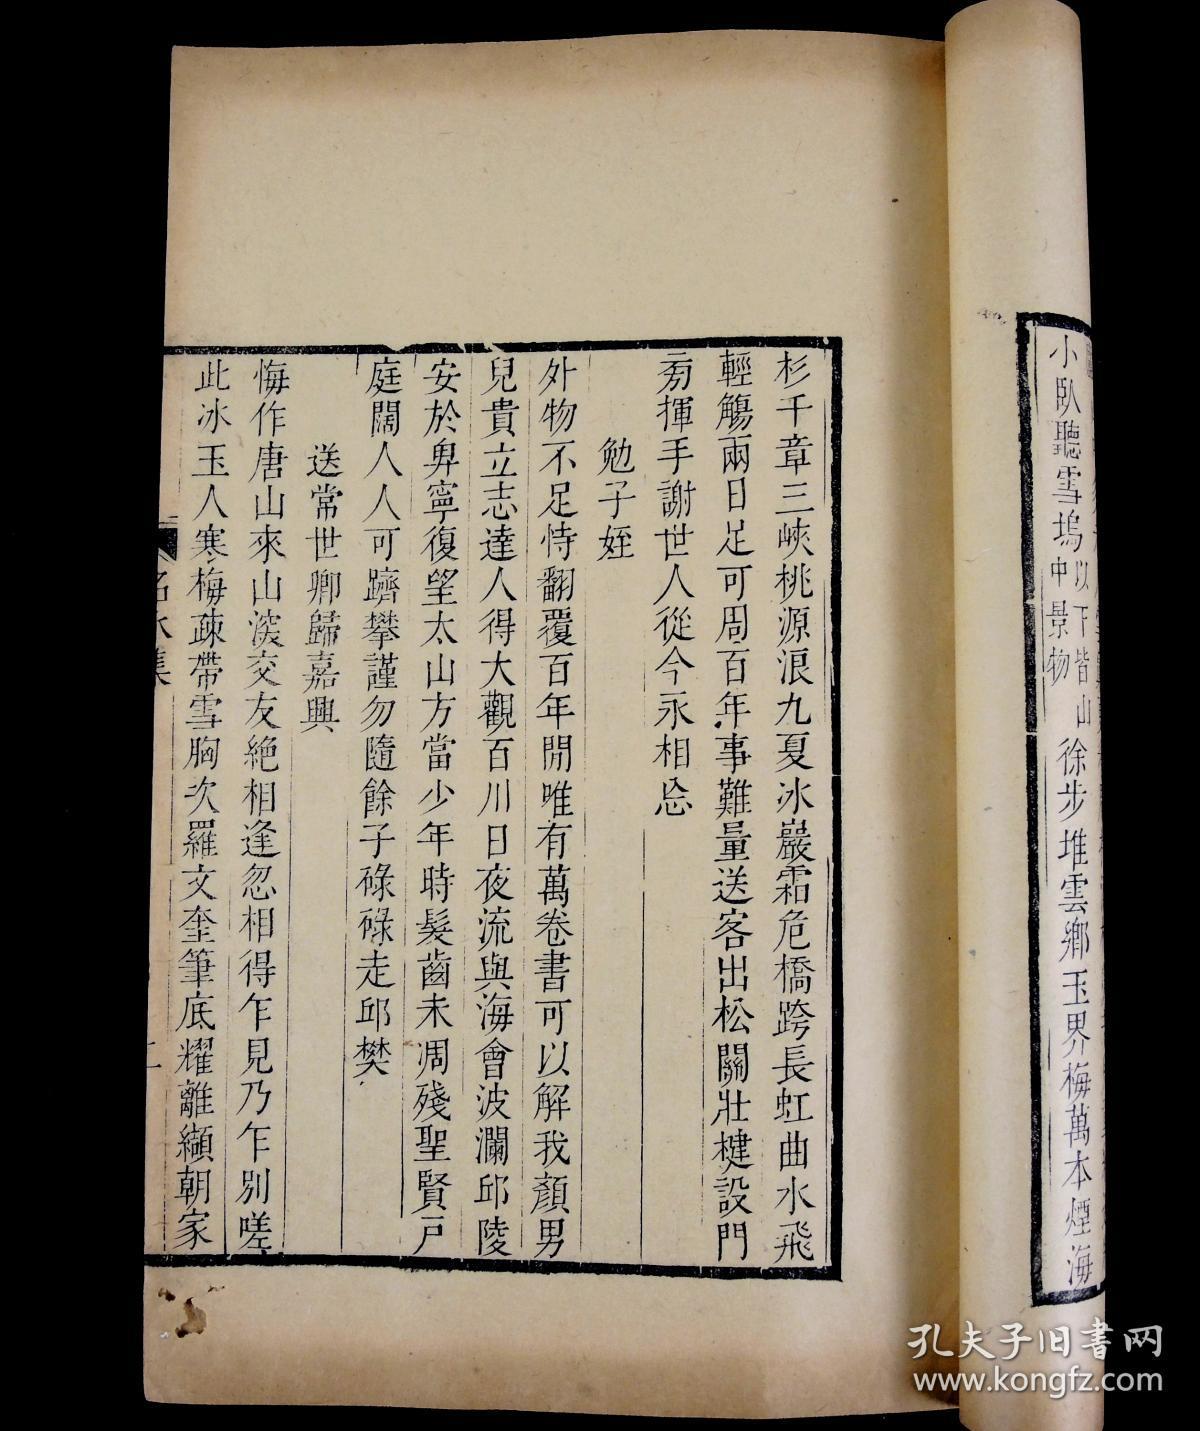 小臥聽雪塢以下皆山中景物徐步堆雲鄉玉界梅萬本煙海
杉千章三峽桃源浪九夏冰巖霜危橋跨長虹曲水飛
輕觴兩日足可周百年事難量送客出松關壯楗設門
旁揮手謝世人從今永相忘
勉子姪
外物不足恃翻覆百年閒唯有萬卷書可以解我顏男
兒貴立志達人得大觀百川日夜流與海會波瀾邱陵
安於卑寧復望太山方當少年時髮齒未凋殘聖賢戸
庭闊人人可躋攀謹勿隨餘子碌碌走邱樊
送常世卿歸嘉興
悔作唐山來山淡交友絶相逢忽相得乍見乃乍別嗟
此冰玉人寒梅疎帶雪胸次羅文奎筆底耀離纈朝家
洺水集
二
孔夫子旧书网
www.kongfz.com